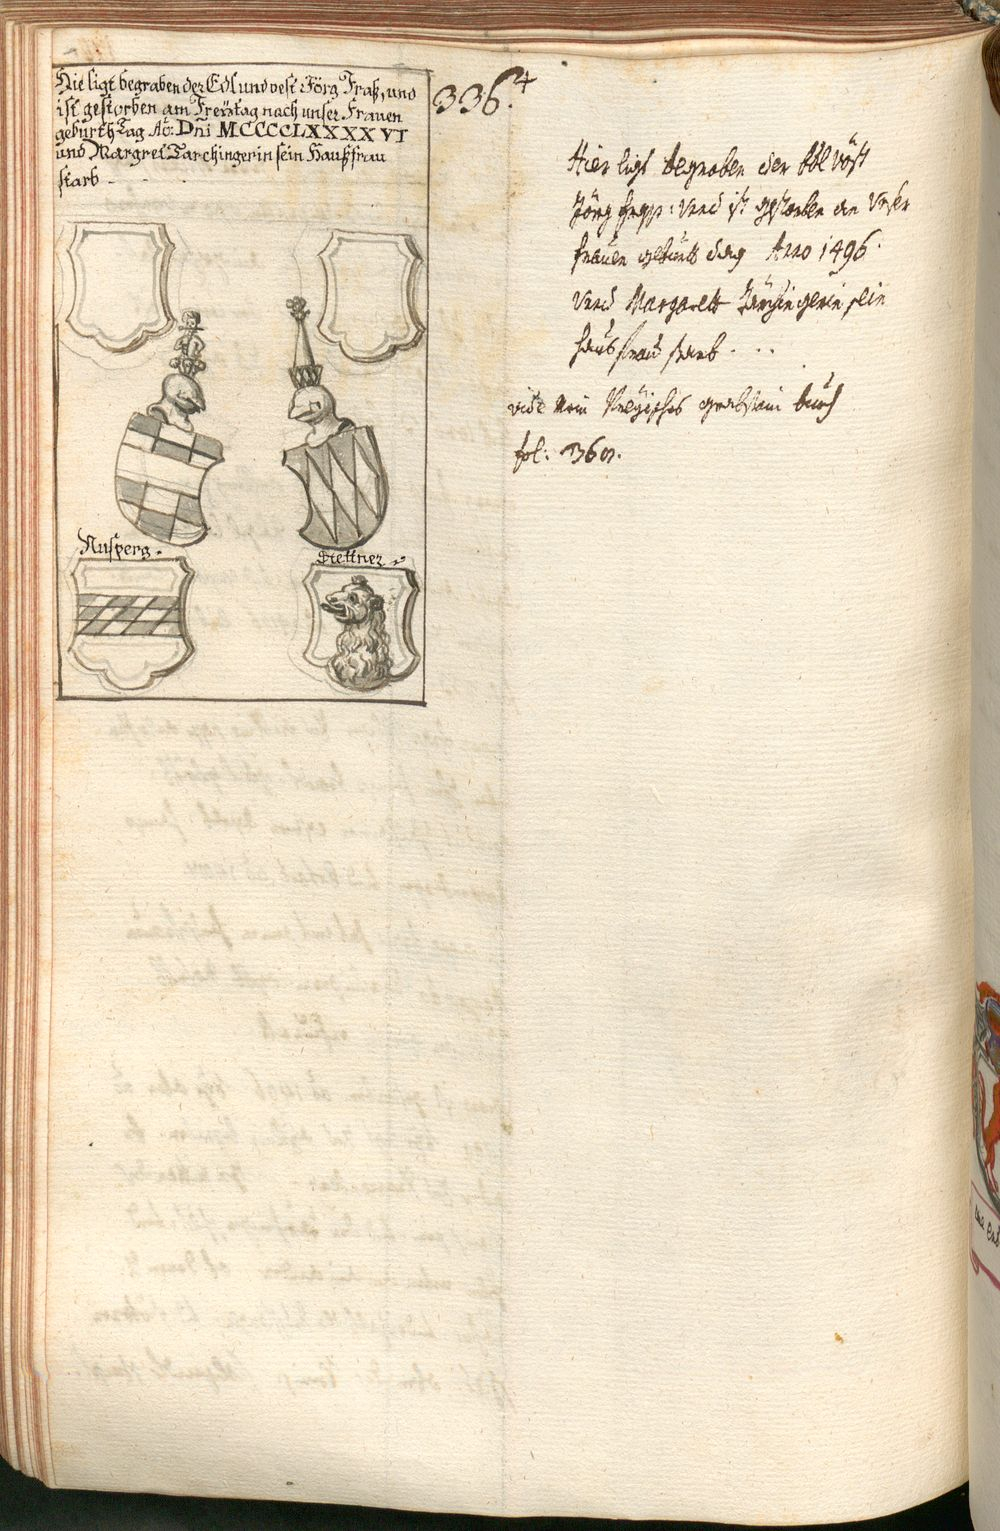 Hie ligt begraben der Edl und vest Jörg Fraß, und
ist gestorben am Freÿtag nach unser Frauen
geburth Tag Aõ: Dñi MCCCCLXXXXVI
und Margret Tarchingerin sein Haußfrau
starb - - -
336.
4
Hier ligt begraben der Edl vöst
Jörg vnd ist gestorben an Vnser
frauen geburts dag Anno 1496.
Vnd Margarett sein
hausfrau starb - . . .
vide mein grabstain buech
fol: 360.
Nusperg.
Stettner